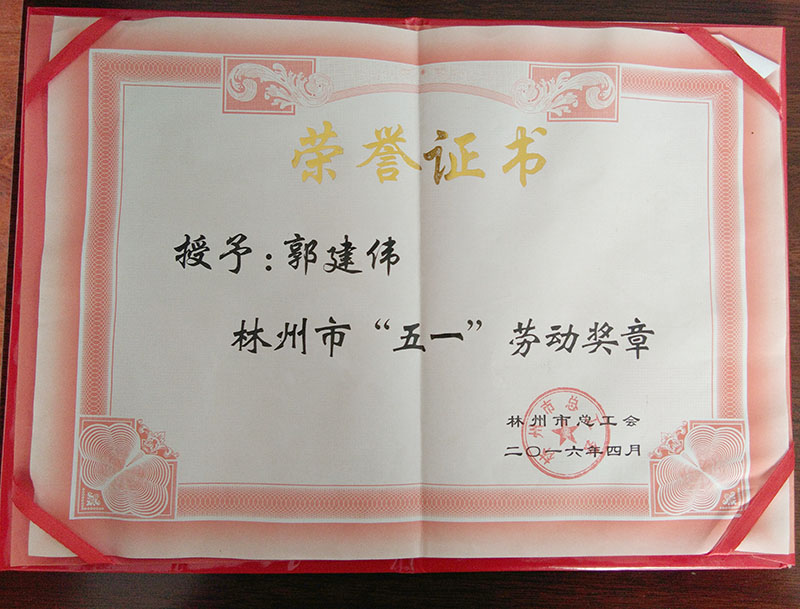 荣誉证书
授予：郭建伟
林州市“五一”劳动奖章
林州市总工会
二〇一六年四月
林州市总工会